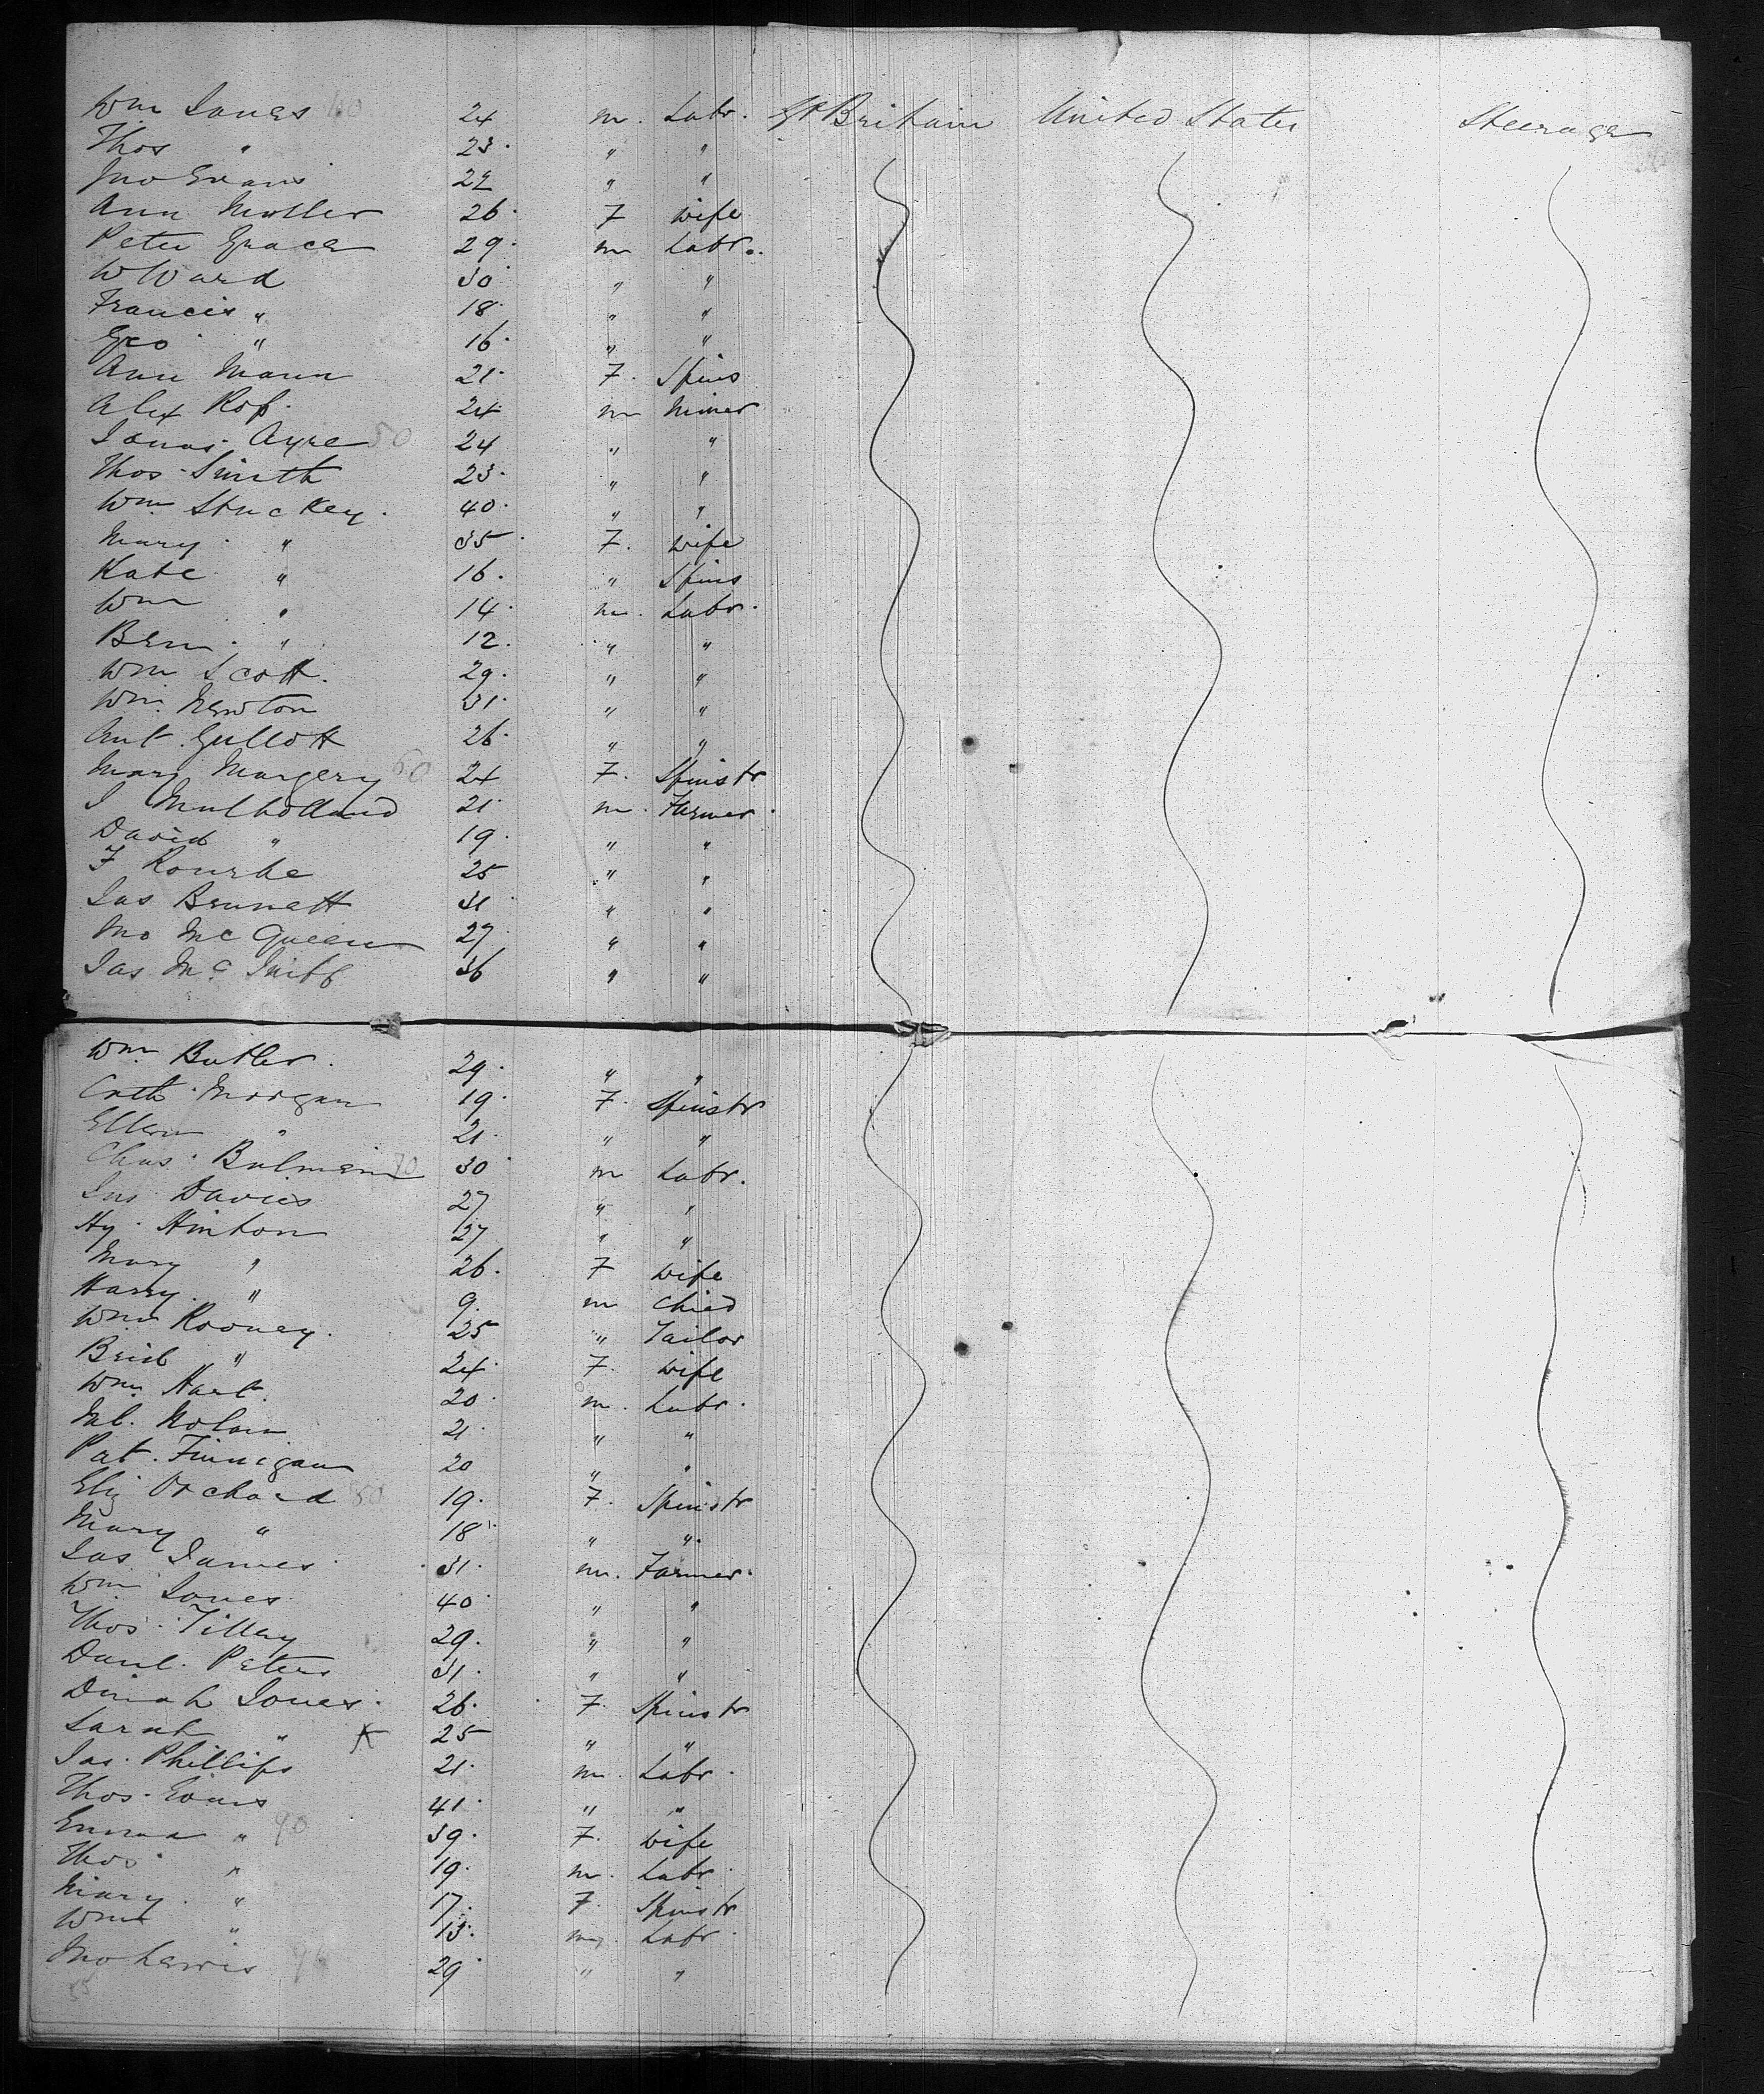 Wm Jones 40 24 m. Labr. Gt Britain United States Steerage
Thos " 23. " "
Jno Evans 22 " "
Ann Motler 26. F wife
Peter Grace 29. m Labr.
W Ward 30 " "
Francis " 18. " "
Geo " 16. " "
Ann Mann 21. F. Spins
Alex Roß. 24 m Miner
Jonas Ayre 50 24 " "
Thos. Smith 23. " "
Wm Stuckey. 40. " "
Mary " 35. F. wife
Kate " 16. " Spins
Wm " 14. m. Labr.
Benj. " 12. " "
Wm Scott. 29. " "
Wm. Newton 31. " "
Ant. Gullott 26. " "
Mary Margery 60 24 F. Spinstr
J Mulholland 21. m. Farmer.
David " 19. " "
F Rourke 25 " "
Jas Brunett 31 " "
Jno McQueen 27 " "
Jas Mc 36 " "
Wm Butler. 29. " "
Cath. Morgan 19. F. Spinstr
Ellen " 21. " "
Chas. Bulman 70 30 m Labr.
Jno Davies 27 " "
Hy. Hinton 27 " "
Mary " 26. F wife
Harry. " 9. m Child
Wm Rooney. 25 " Tailor
Brid " 24. F. wife
Wm Hart. 20. m. Labr.
Ml. Nolan 21. " "
Pat. Finnigan 20 " "
Eliz Orchard 80 19. F. Spinstr
Mary " 18 " "
Jas James 31. m. Farmer.
Wm Jones 40 " "
Thos. Tilley 29. " "
Danl. Peters 31. " "
Dinah Jones. 26. F. Spinstr
Sarah " 25 " "
Jas. Phillips 21. m. Labr.
Thos. Evans 41. " "
Emma " 90 39. F. wife
Thos. " 19. m. Labr.
Mary. " 17. F. Spinstr
Wm " 13. m. Labr.
Jno Lewis 29. " "
55